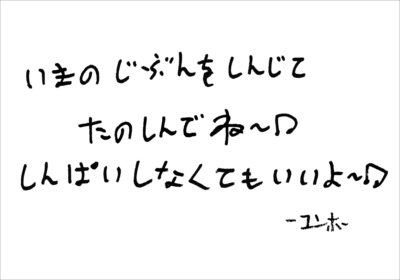 いまの じぶんを しんじて
たのしんでね〜♫
しんぱいしなくてもいいよ〜♫
-ユンホ-